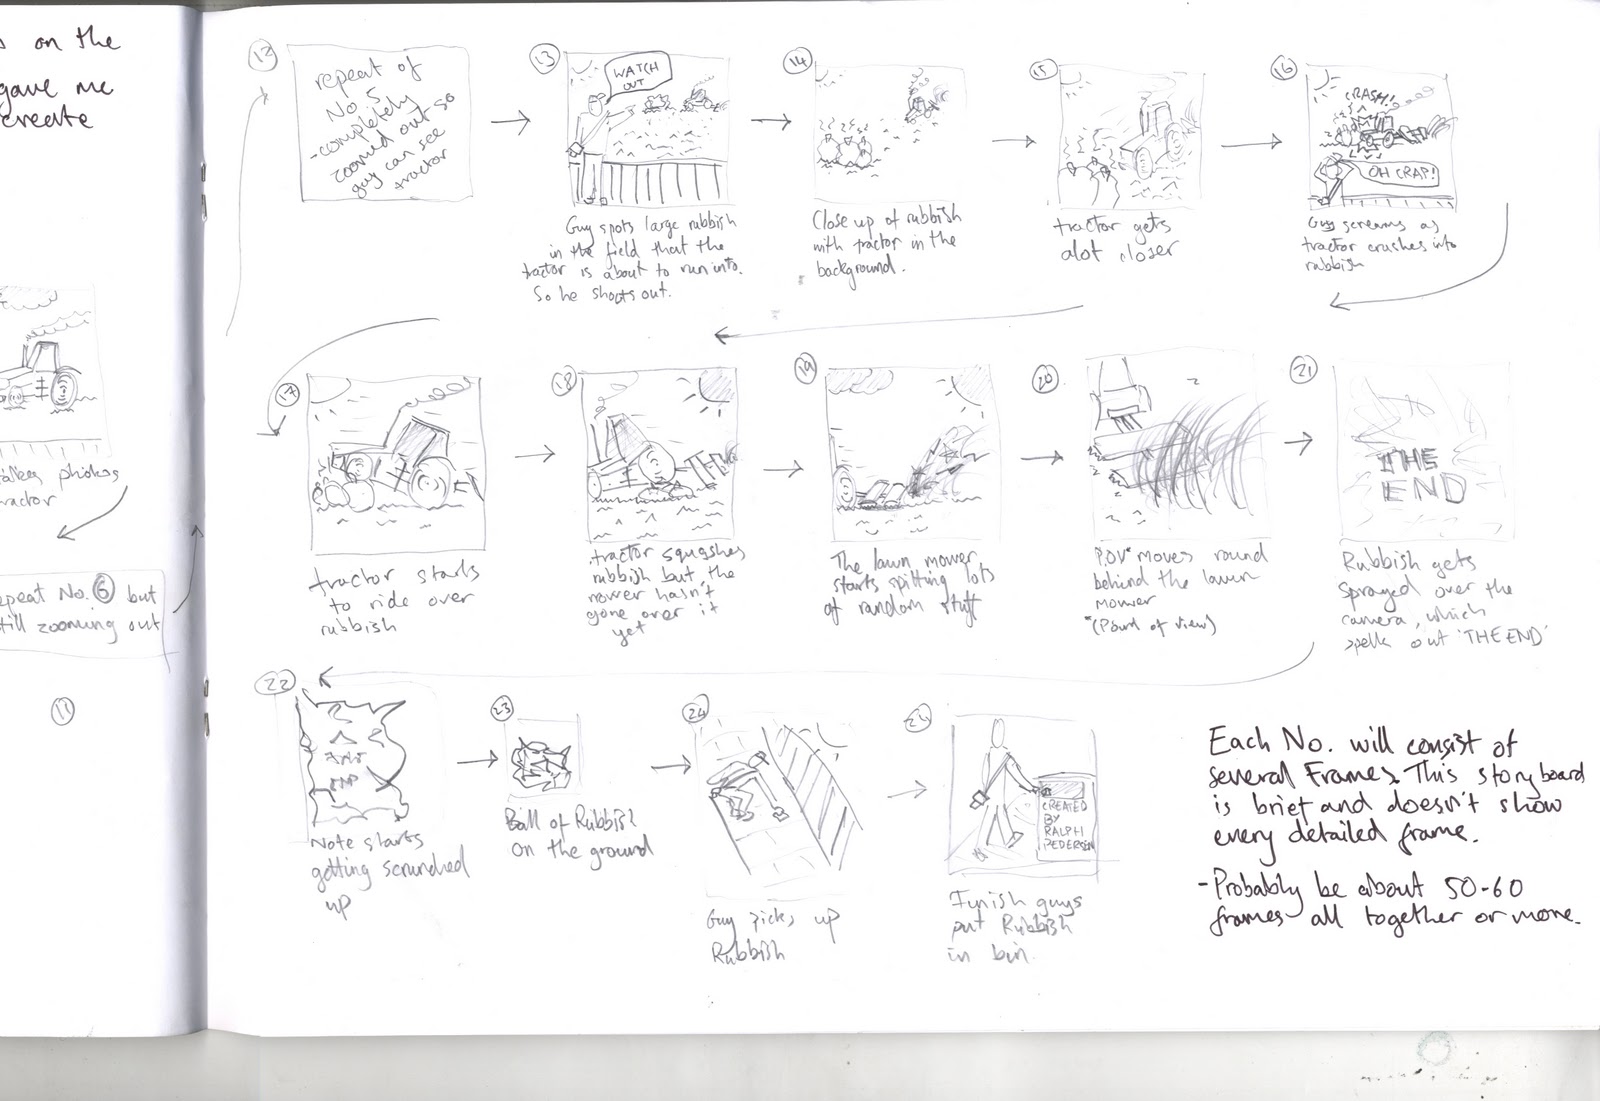 s on the
gave me
create
takes photos
tractor
repeat No. 6 but
still zooming out
11
12
repeat of
No 5
-completely
zoomed out so
guy can see
tractor
13
WATCH
OUT
Guy spots large rubbish
in the field that the
tractor is about to run into.
So he shouts out.
14
Close up of rubbish
with tractor in the
background.
15
tractor gets
alot closer
16
CRASH!
OH CRAP!
Guy screams as
tractor crashes into
rubbish
17
tractor starts
to ride over
rubbish
18
tractor squashes
rubbish but the
mower hasn't
gone over it
yet
19
The lawn mower
starts spitting lots
of random stuff
20
P.O.V* moves round
behind the lawn
mower
*(Point of view)
21
THE
END
Rubbish gets
sprayed over the
camera, which
spells out 'THE END'
22
Note starts
getting scrunched
up
23
Ball of Rubbish
on the ground
24
Guy picks up
Rubbish
25
CREATED
BY
RALPH
PEDERSEN
Finish guys
put Rubbish
in bin.
Each No. will consist of
several Frames. This storyboard
is brief and doesn't show
every detailed frame.
-Probably be about 50-60
frames all together or more.